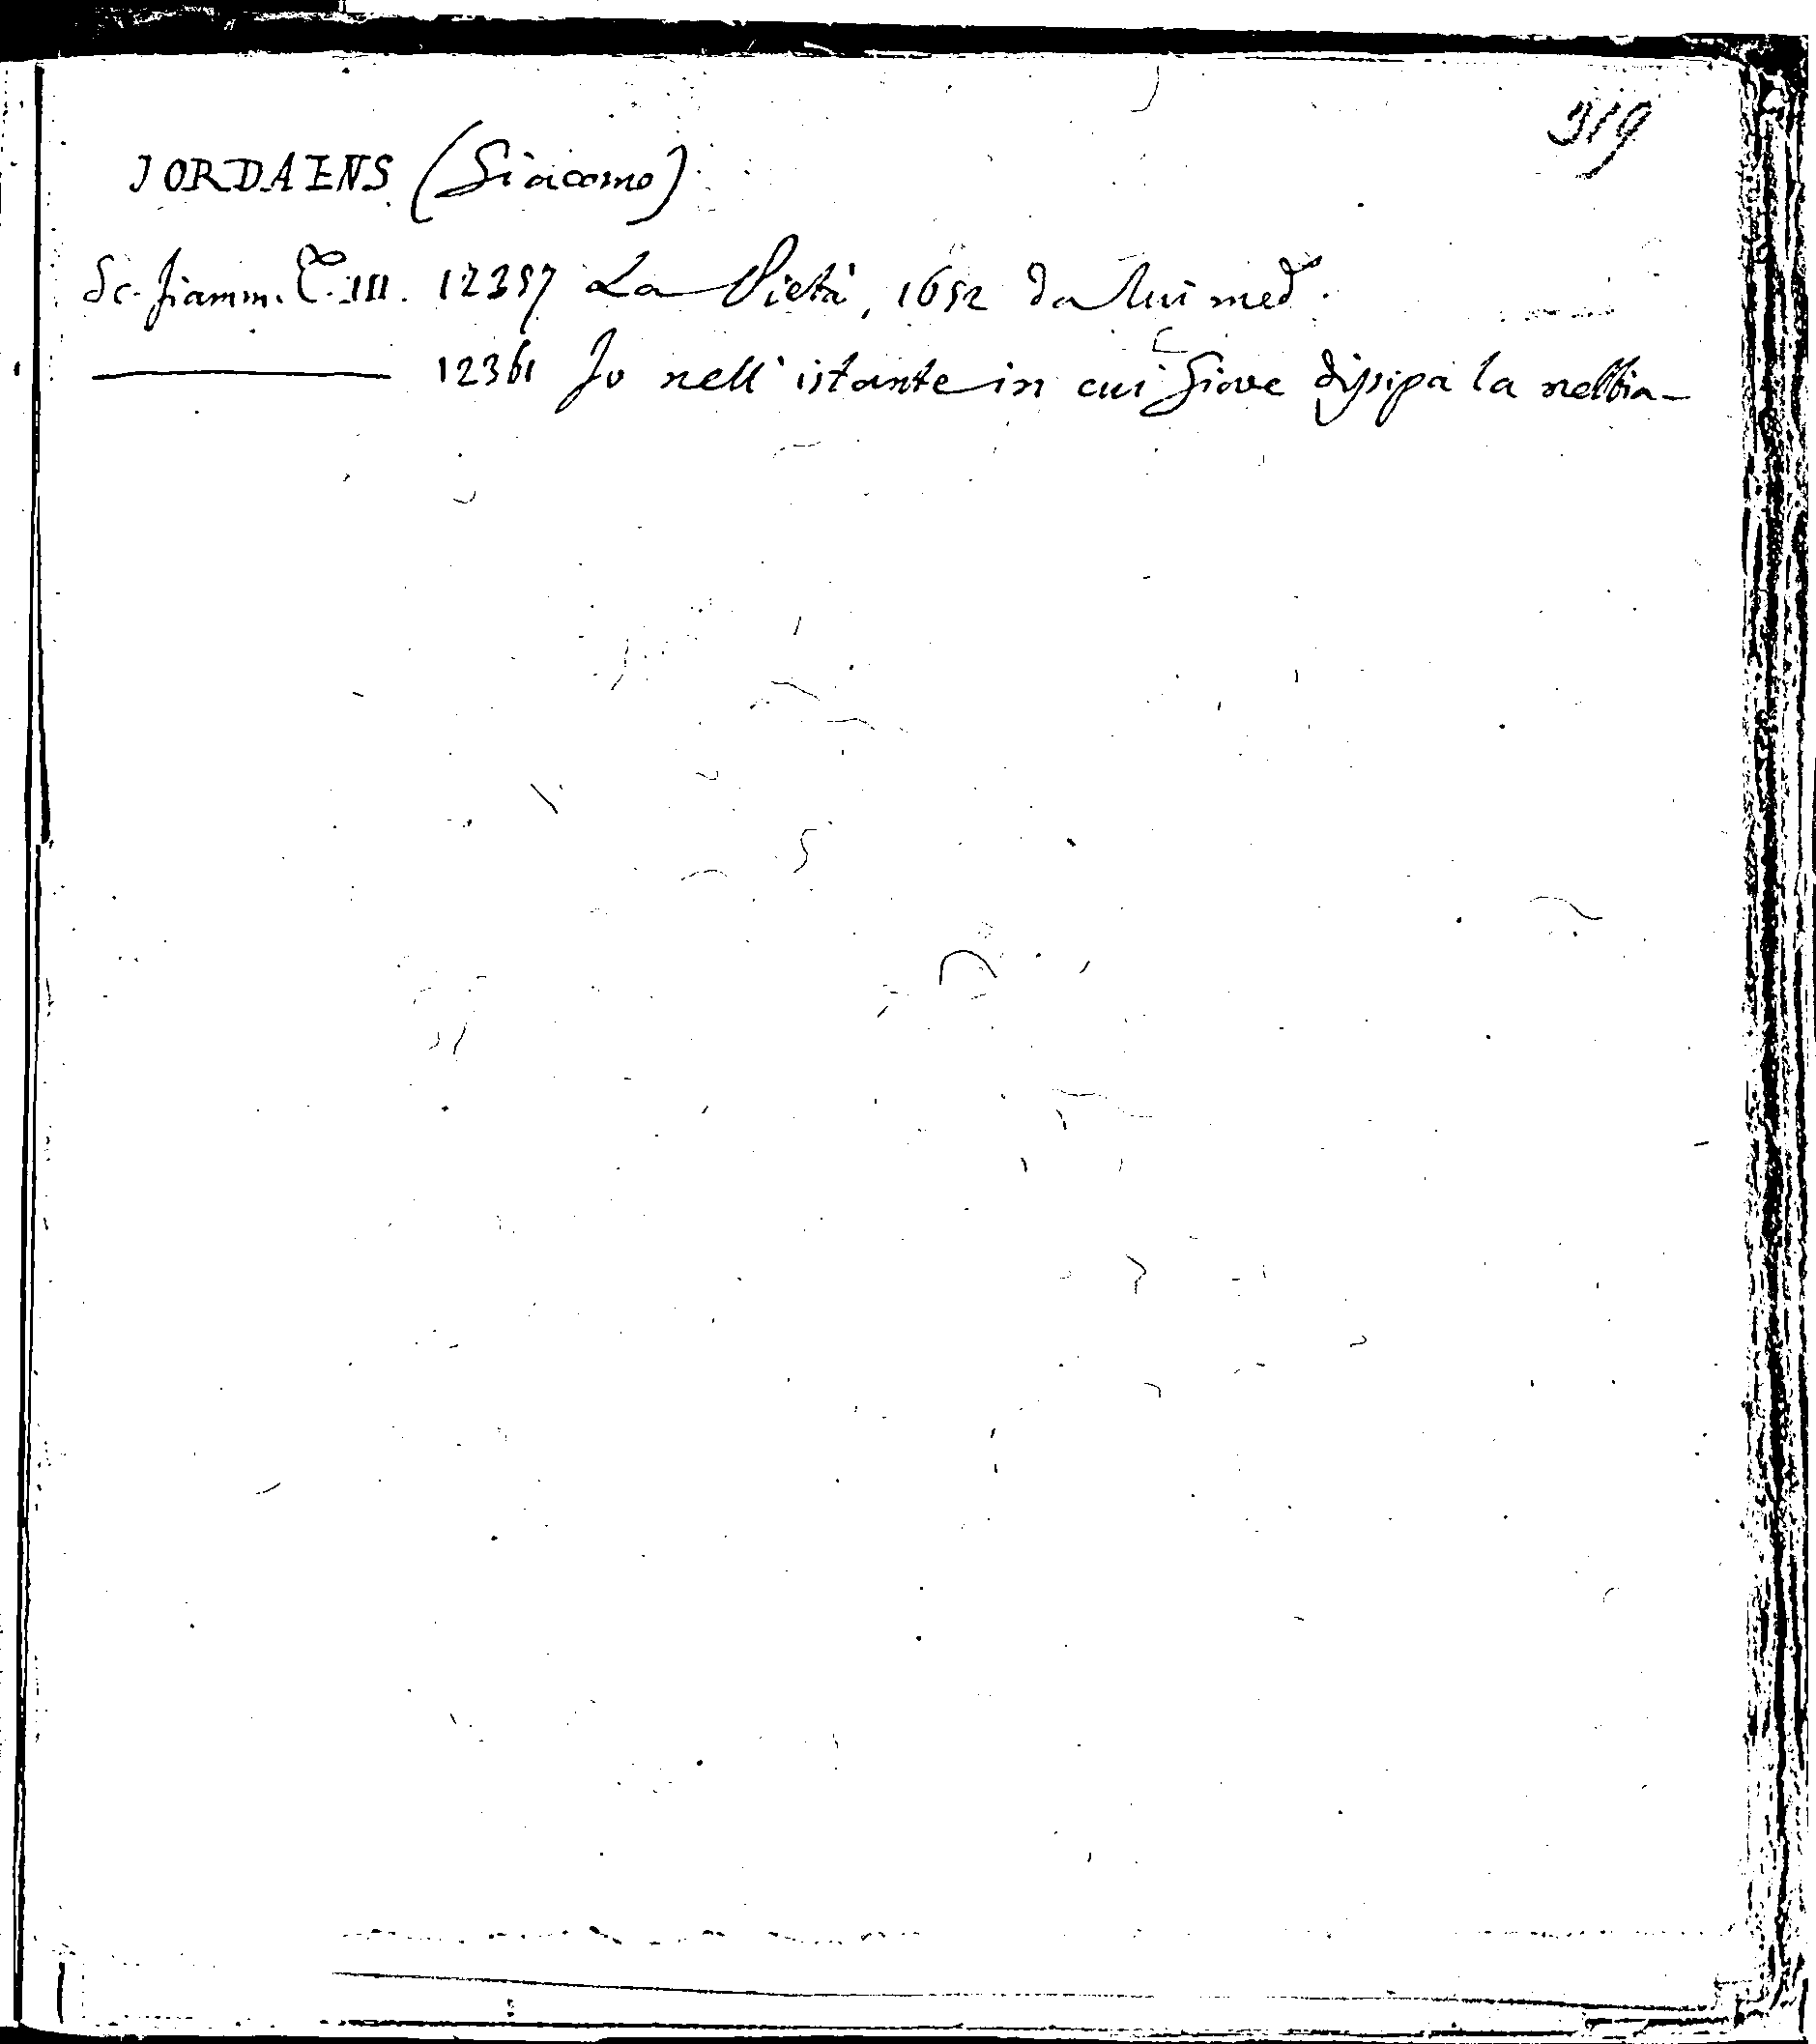 319
JORDAENS (Giacomo)
Sc. fiamm. T. III. 12357 La Pietà, 1652 da lui med.
12361 Io nell' istante in cui Giove dissipa la nebbia